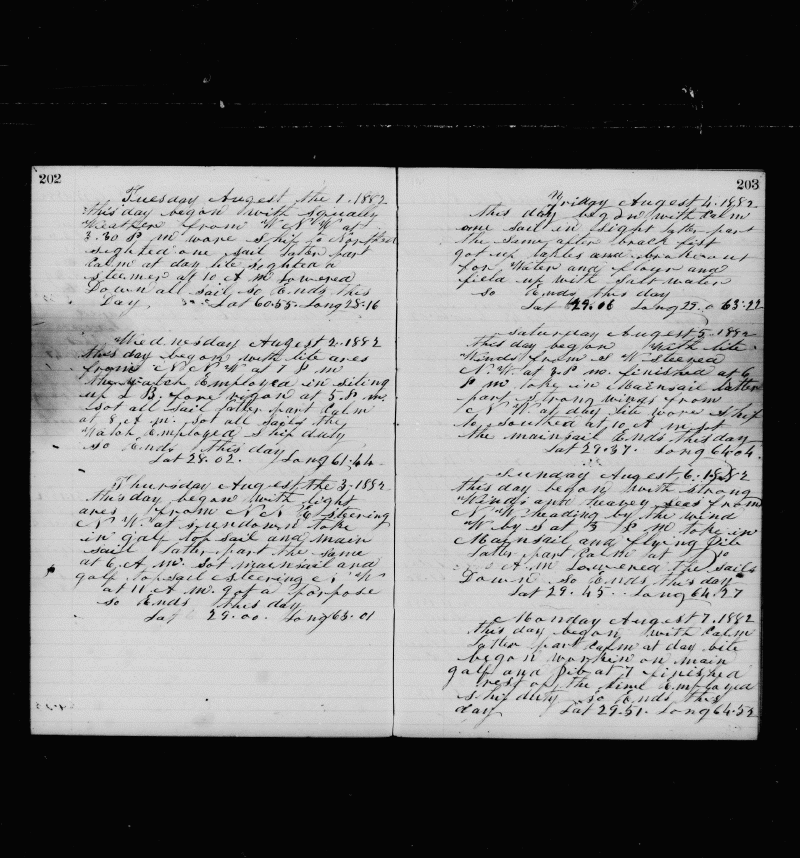 202
Tuesday August the 1. 1882
this day began with Squally
Weather from W N W at
3.30 P m wore Ship to Northerd
sighted one sail later part
Calm at day lite sighted a
steemer at 10 A m Lowered
Down all sail so Ends this
Day Lat 60.55. Long 28.16
Wednesday August 2. 1882
this day began with lite ares
from N N W at 7 P m
the watch Employed in
up L B. fore at 5 P. m.
sot all sail latter part Calm
at 8 A m. sot all sails the
Watch Employed Ship duty
so Ends this day
Lat 28.02. Long 61.44
Thursday August the 3. 1882
this day began with light
ares from N N E steering
N W at sundown take
in galf top sail and main
sail latter part the same
at 6 A. m. sot mainsail and
galf top sail steering N W
at 11 A m got a Porpose
so Ends this day
Lat 29.00. Long 63.01
203
Friday August 4. 1882
this day began with Calm
one sail in sight latter part
the same after breck fist
got up takles and broke out
for Water and flour and
field up with salt water
so Ends this day
Lat 29.06 Long 63.22
Saturday August 5. 1882
this day began With lite
Winds from S W steered
N. W. at 3 P. m. finished at 6
P m take in Mainsail latter
part strong winds from
N W. at day lite wore ship
to southerd at 10. A m sot
the mainsail Ends this day
Lat 29.37. Long 64.04
Sunday August 6. 1882
this day began with strong
Winds and heavey sees from
N. W. heading by the wind
W by S at 3 P M take in
Mainsail and flying Jib
latter part Calm at
A M Lowered the sails
Down so Ends this day
Lat 29.45. Long 64.27
Monday August 7. 1882
this day began with Calm
latter part Calm at day lite
began workin on main
galf and Jib at 7 finished
rest of the time Employed
ship duty so Ends this
day Lat 29.51. Long 64.52